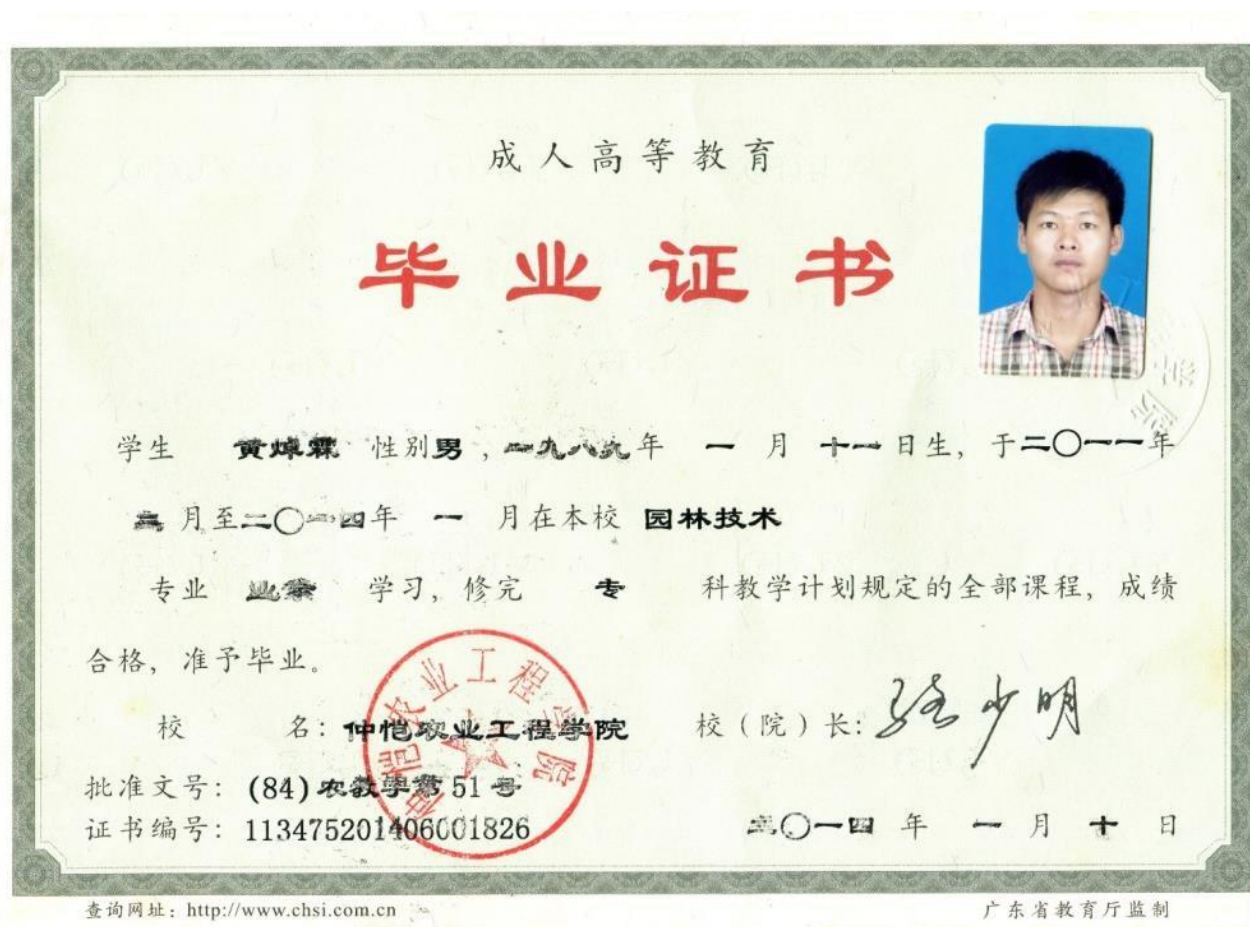 成人高等教育
毕业证书
学生 黄焯霖 性别男，一九八九年 一 月 十一日生，于二〇一一年
月至二〇一四年 一 月在本校 园林技术
专业 业余 学习，修完 专 科教学计划规定的全部课程，成绩
合格，准予毕业。
校 名：仲恺农业工程学院 校（院）长：骆少明
仲恺农业工程学院
批准文号：(84)农教学第51号
证书编号：113475201406001826 二〇一四 年 一 月 十 日
查询网址：http://www.chsi.com.cn 广东省教育厅监制